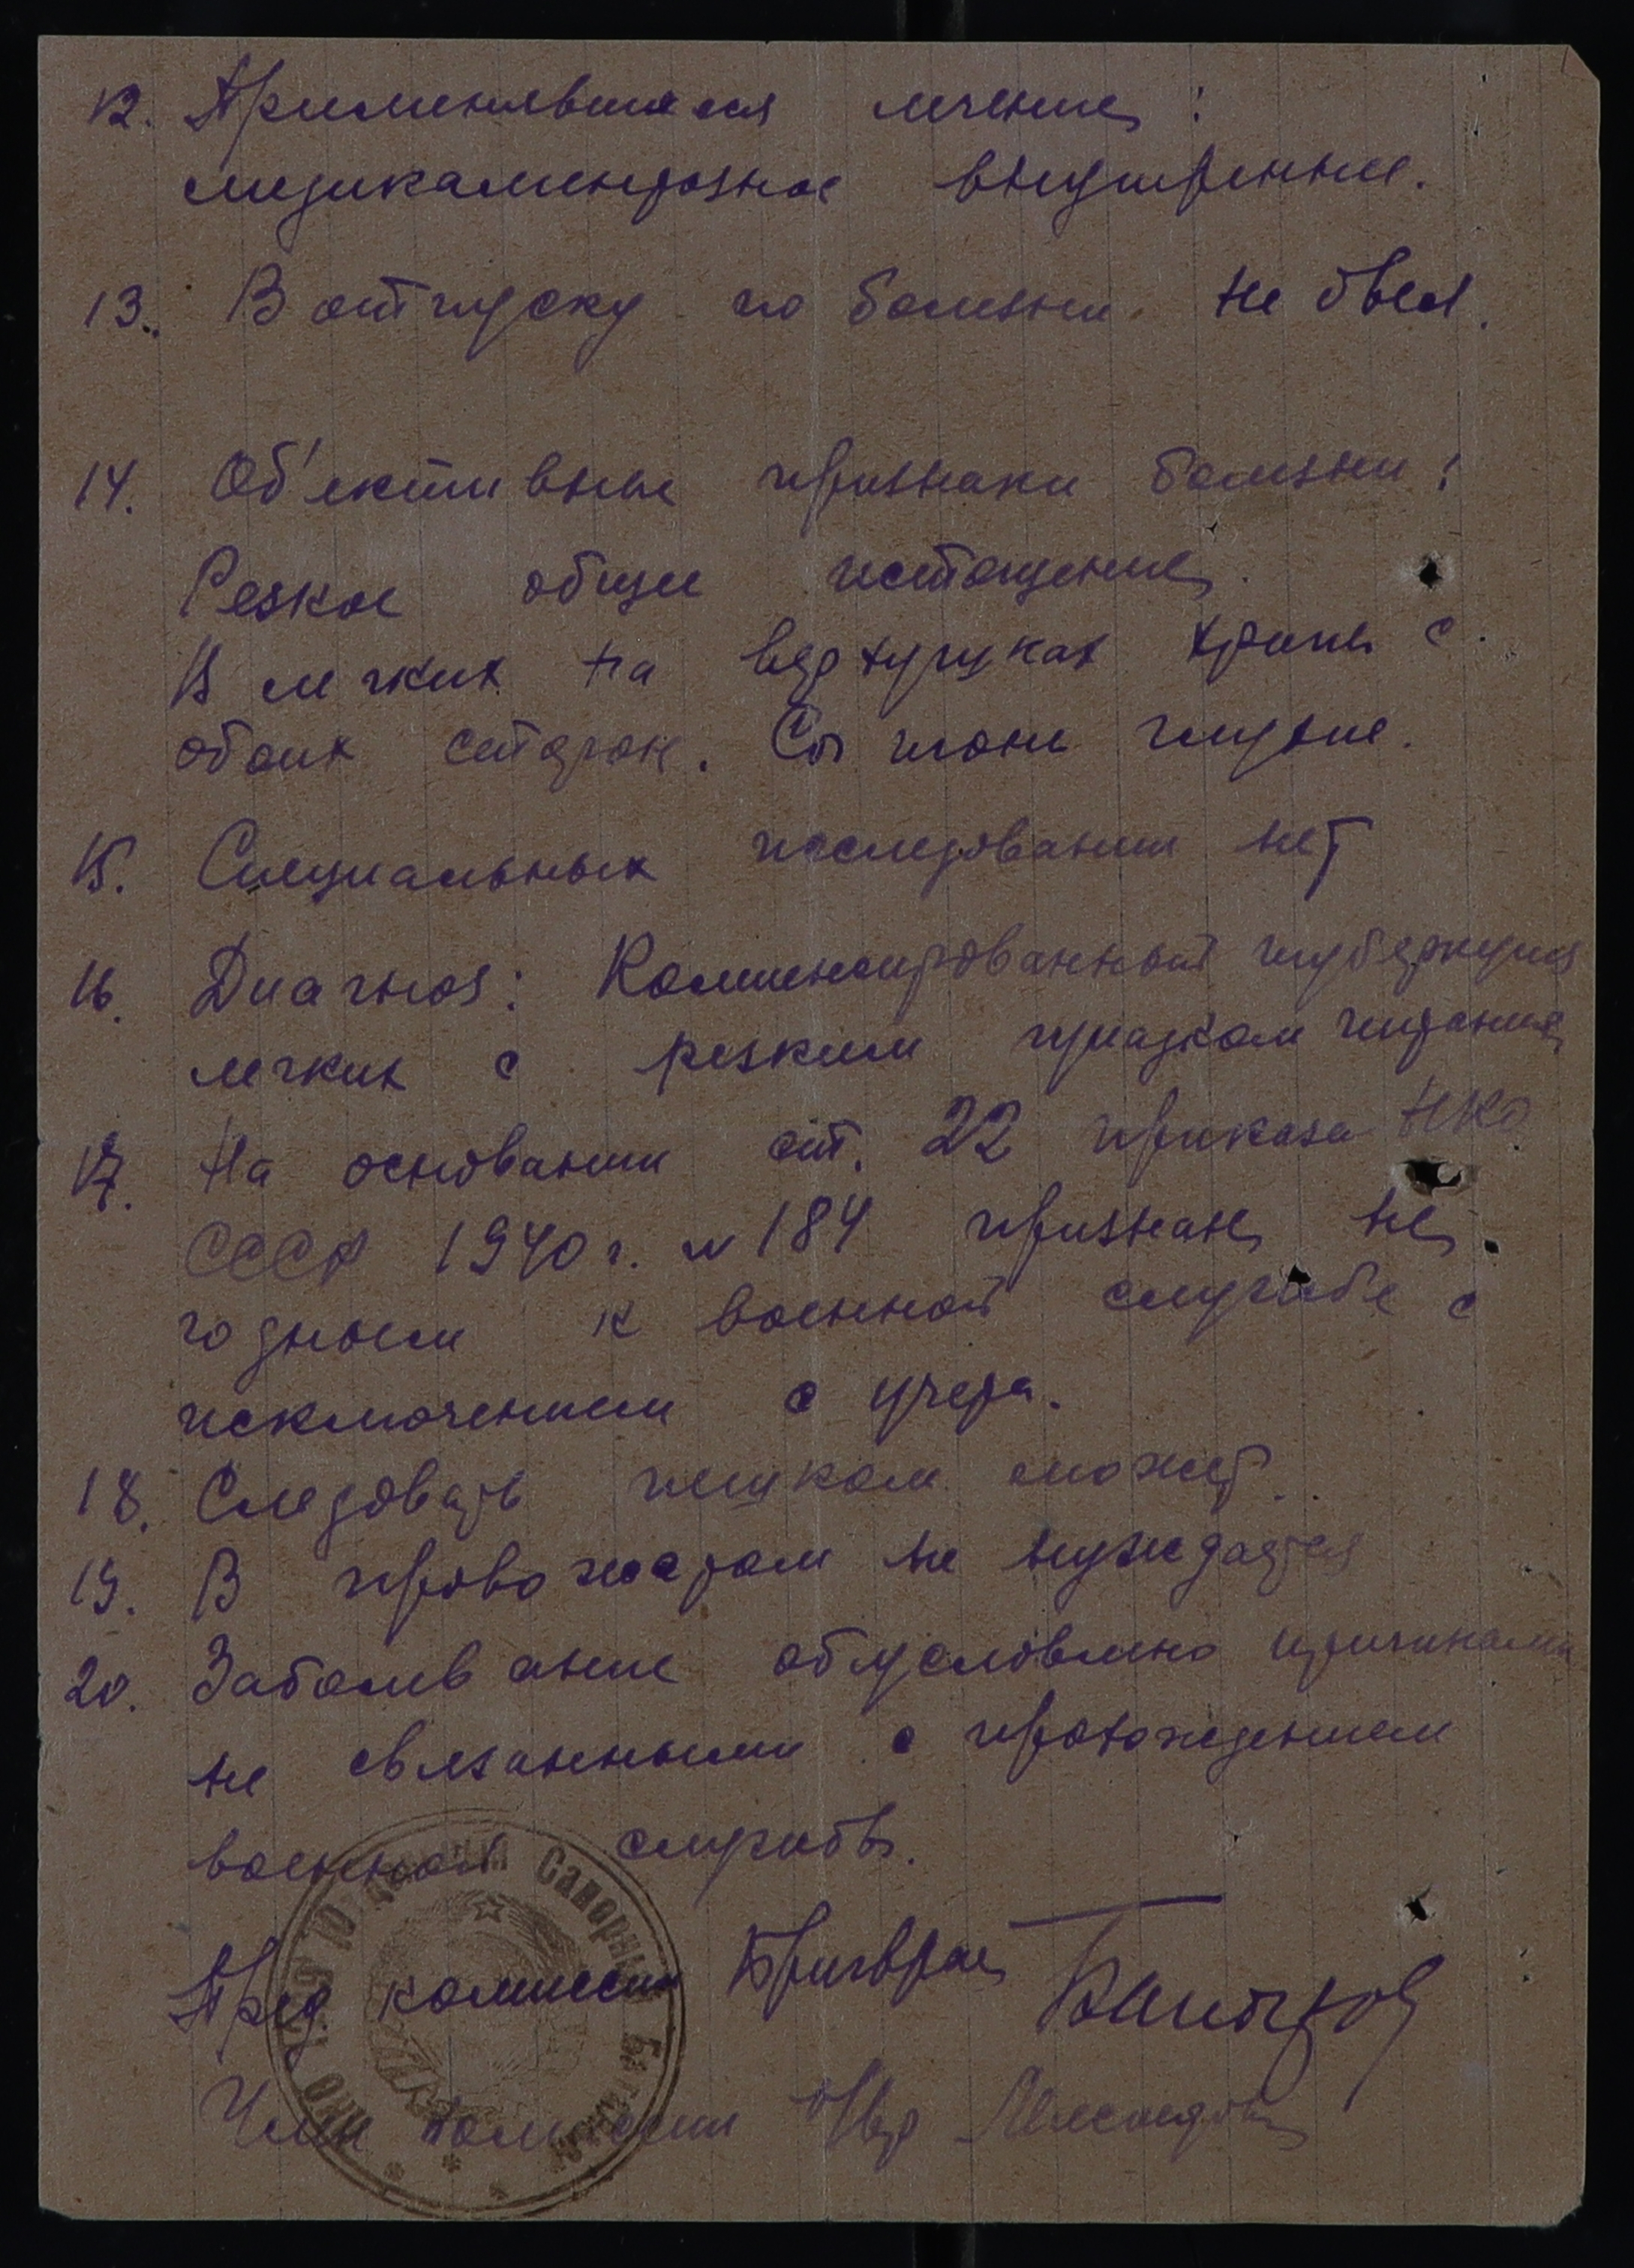 12. Применявшиеся лечение:
медикаментозное внутреннее.
13. В отпуску по болезни не был.
14. Об'ективные признаки болезни:
Резкое общее истощение.
В легких на верхушках хрипы с
обоих сторон. Со тоны глухие.
15. Специальных исследовании нет
16. Диагноз: Компенсированный туберкулез
легких с резким упадком питания
17. На основании ст. 22 приказа НКО
СССР 1940 г. № 184 признан не
годным к военной службе с
исключением с учета.
18. Следовать пешком может.
19. В провожатом не нуждается
20. Заболевание обусловлено причинами
не связанными с прохождением
военной службы.
Пред комиссии Бригврач
Член комиссии
Саперный Батальон